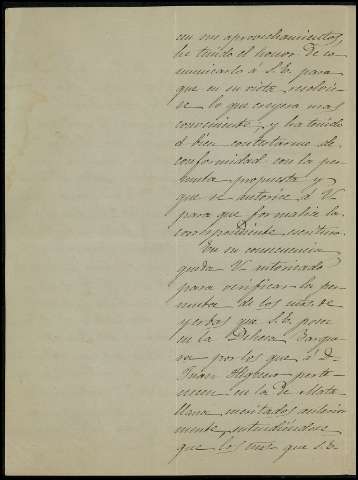 en sus aprovechamientos,
he tenido el honor de co
municarlo á S.E. para
que en su vista resolvie
se lo que creyera mas
conveniente, y ha tenido
á bien contestarme de
conformidad con la per
muta propuesta y
que se autorice á V.
para que formalice la
correspondiente escritura.
En su consecuencia
queda V. autorizado
para verificar la per
muta de los mrs. de
yerbas que S.E. posee
en la Dehesa
ra por los que á D.
Juan perte
necen en la de Mata
llana citados anterior
mente, entendiéndose
que los mrs. que S.E.